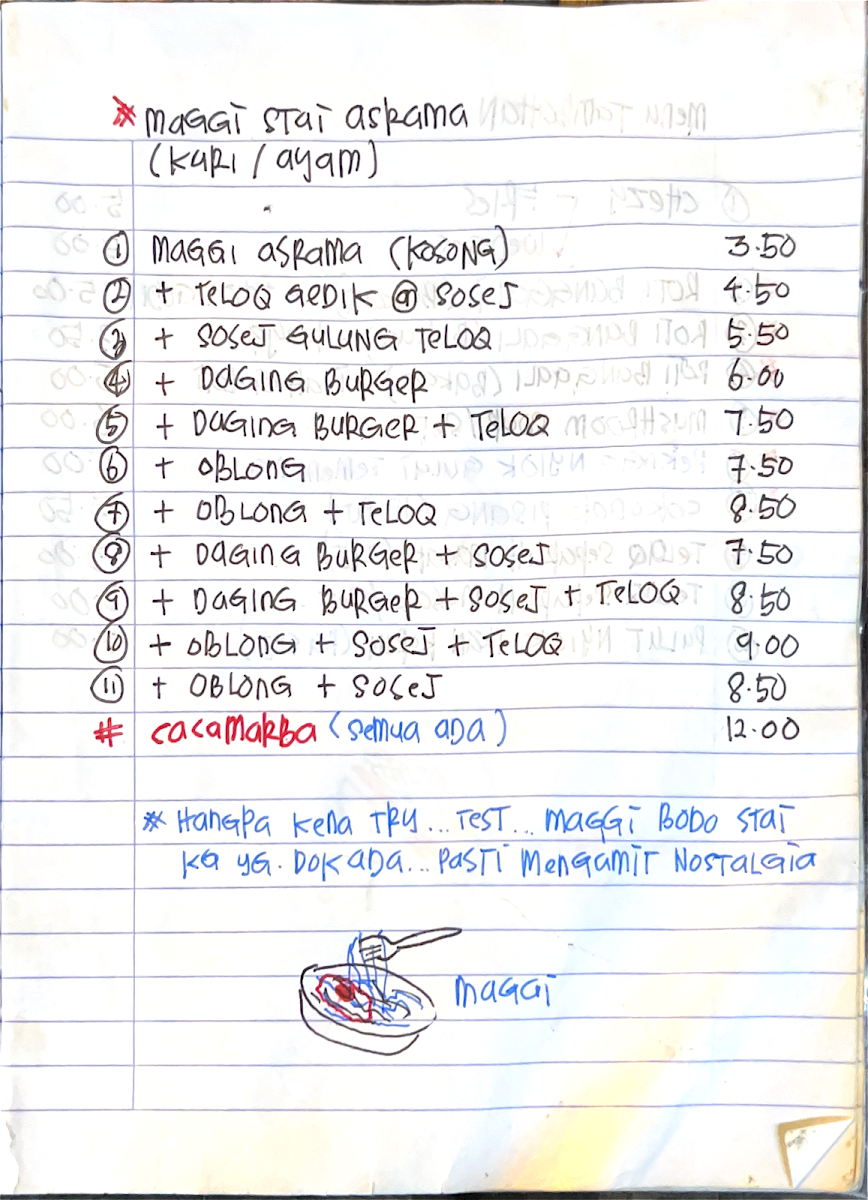 * MAGGI STAI ASRAMA
(KARI / AYAM)
① MAGGI ASRAMA (KOSONG) 3.50
② + TELOQ GEDIK @ SOSEJ 4.50
③ + SOSEJ GULUNG TELOQ 5.50
④ + DAGING BURGER 6.00
⑤ + DAGING BURGER + TELOQ 7.50
⑥ + OBLONG 7.50
⑦ + OBLONG + TELOQ 8.50
⑧ + DAGING BURGER + SOSEJ 7.50
⑨ + DAGING BURGER + SOSEJ + TELOQ 8.50
⑩ + OBLONG + SOSEJ + TELOQ 9.00
⑪ + OBLONG + SOSEJ 8.50
# CACAMARBA (SEMUA ADA) 12.00
* HANGPA KENA TRY... TEST... MAGGI BODO STAI
KG YG. DOK ADA... PASTI MENGAMIT NOSTALGIA
MAGGI